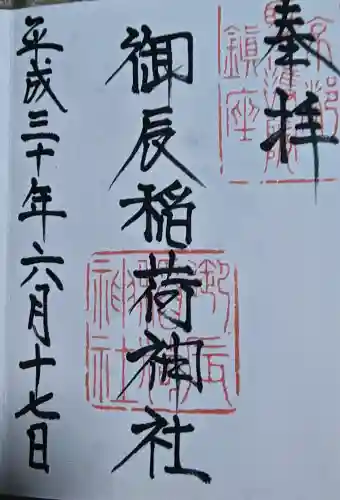 奉拝
御辰稲荷神社
平成三十年六月十七日
京都
鎮座
御辰
稲荷
神社